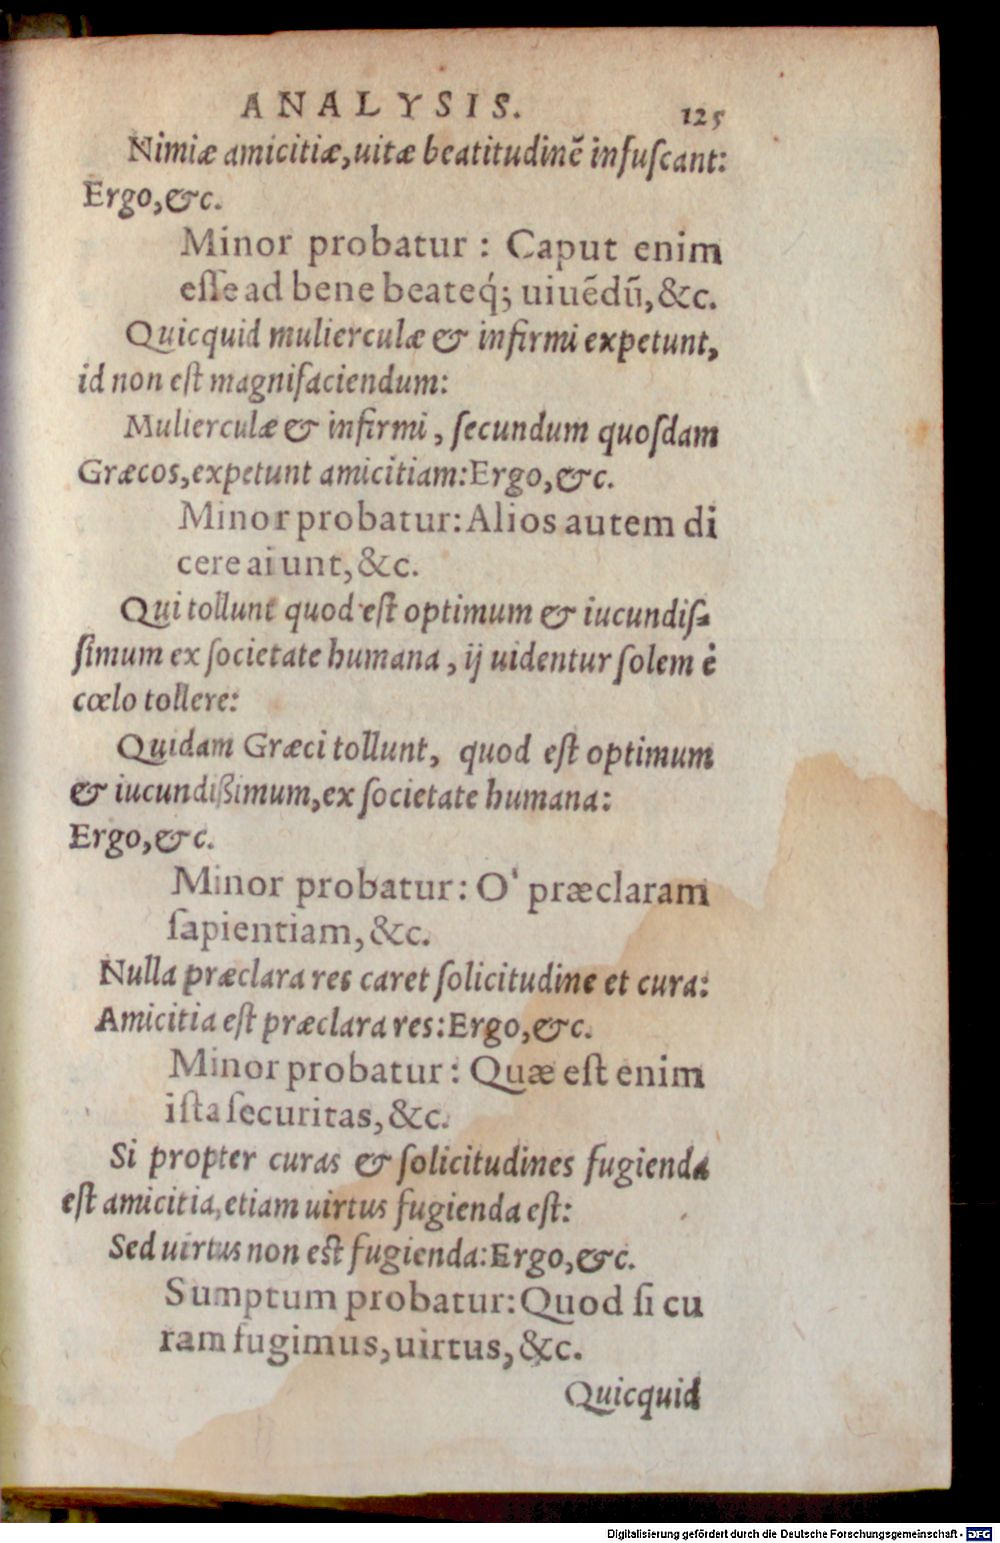 ANALYSIS. 125
Nimiæ amicitiæ,uitæ beatitudinē infuſcant:
Ergo,&c.
Minor probatur : Caput enim
eſſe ad bene beateq́; uiuēdū,&c.
Quicquid mulierculæ & infirmi expetunt,
id non eſt magnifaciendum:
Mulierculæ & infirmi , ſecundum quoſdam
Græcos,expetunt amicitiam:Ergo,&c.
Minor probatur: Alios autem di
cere aiunt,&c.
Qui tollunt quod eſt optimum & iucundiſ⸗
ſimum ex ſocietate humana , ij uidentur ſolem è
cœlo tollere:
Quidam Græci tollunt, quod eſt optimum
& iucundißimum,ex ſocietate humana:
Ergo,&c.
Minor probatur: O' præclaram
ſapientiam,&c.
Nulla præclara res caret ſolicitudine et cura:
Amicitia eſt præclara res:Ergo,&c.
Minor probatur: Quæ eſt enim
iſta ſecuritas,&c.
Si propter curas & ſolicitudines fugienda
eſt amicitia,etiam uirtus fugienda eſt:
Sed uirtus non eſt fugienda:Ergo,&c.
Sumptum probatur:Quod ſi cu
ram fugimus,uirtus,&c.
Quicquid
Digitalisierung gefördert durch die Deutsche Forschungsgemeinschaft - DFG